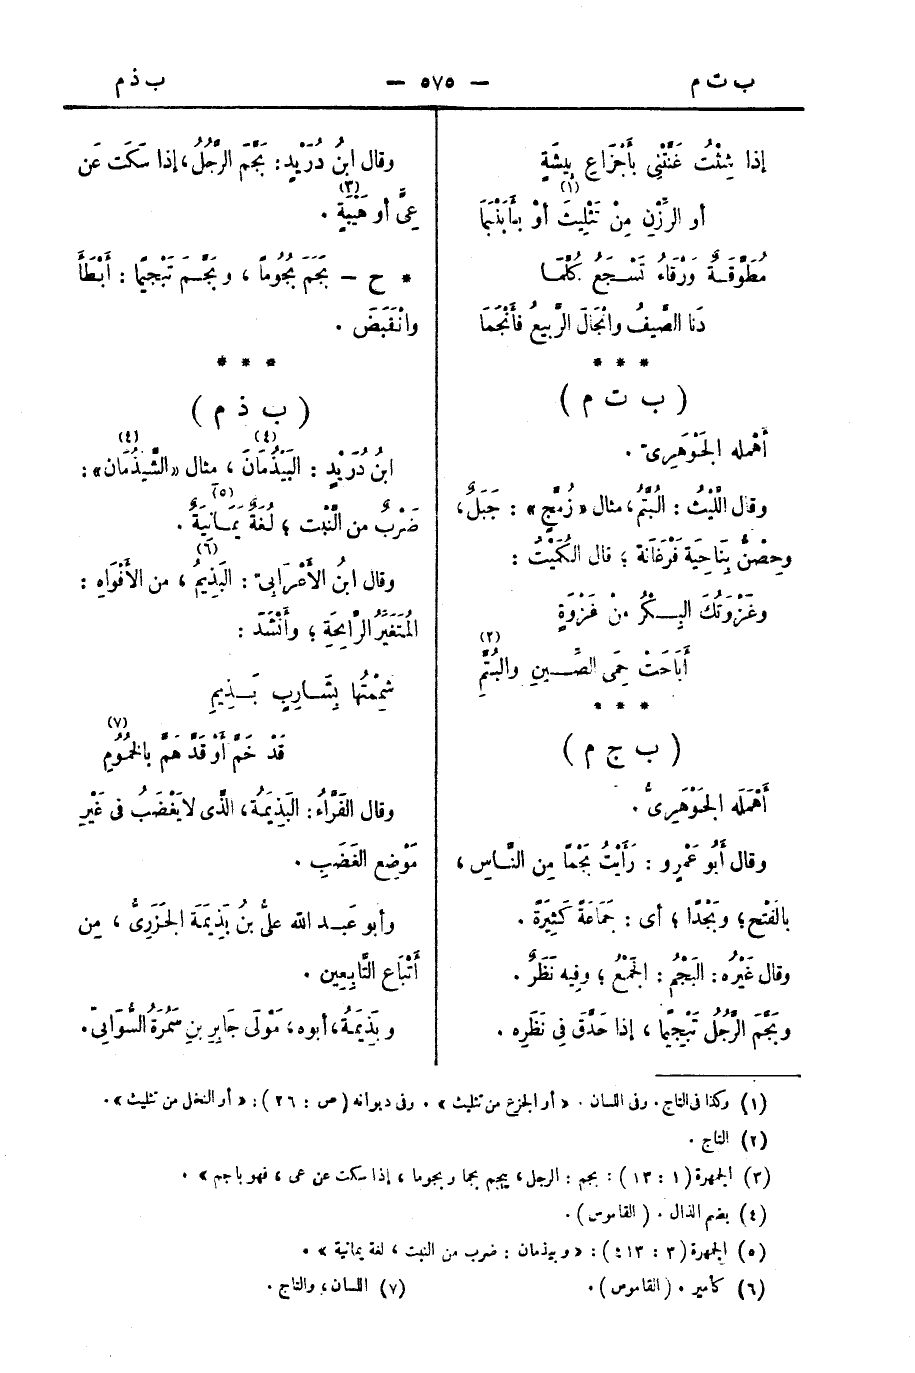 ب ت م — ٥٧٥ — ب ذ م
إذا شِئْتُ غَنَّتْنِي بأَجْزاعِ بِيشَةٍ
أو الرَّزْنِ مِنْ تَثْلِيثَ أَوْ بِيَأَبَنْبَمَا (١)
مُطَوَّقَةٌ وَرْقَاءُ تَسْجَعُ كُلَّمَا
دَنَا الصَّيفُ وانْجَالَ الرَّبيعُ فأَنْجَمَا
* * *
( ب ت م )
أَهْمله الجَوْهَرِىّ .
وقال اللَّيْثُ : البُتَّمُ ، مثال « زُمَّجٍ » : جَبَلٌ ،
وحِصْنٌ بِنَاحِيَة فَرْغَانَة ؛ قال الكُمَيْتُ :
وغَزْوَتُكَ البِــكْرُ مِنْ غَزْوَةٍ
أَبَاحَتْ حِمَى الصِّــينِ والبُتَّمِ (٢)
* * *
( ب ج م )
أَهْمَلَه الجَوْهَرِىُّ .
وقال أَبُو عَمْرٍو : رَأَيْتُ بَجْمًا مِن النَّاسِ ،
بالفَتْح ؛ وبَجْدًا ؛ أى : جَمَاعَةً كَثِيَرةً .
وقال غَيْرُه : البَجْمُ : الجَمْعُ ؛ وفِيه نَظَرٌ .
وبَجَّمَ الرَّجُلُ تَبْجِيمًا ، إذا حَدَّقَ فِى نَظَرِه .
وقال ابنُ دُرَيْدٍ : بَجَّمَ الرَّجُلُ ، إذا سَكَت عَن
عِىٍّ أو هَيْبَةٍ (٣) .
* ح – بَجَمَ بُجُوماً ، وبَجَّــمَ تَبْجِيمًا : أَبْطَأَ
وانْقَبَضَ .
* * *
( ب ذ م )
ابنُ دُرَيْدٍ : البَيْذُمَانَ (٤) ، مثال « الشَّيْذُمَان (٤) » :
ضَرْبٌ من النَّبْت ؛ لُغَةٌ يَمَــانَيَةٌ (٥) .
وقال ابنُ الأَعْرَابىّ : البَذِيمُ (٦) ، من الأَفْوَاهِ :
المُتَغَيَّرُ الرَّائِحَةِ ؛ وأَنْشَدَ :
شَمِمْتُها بِشَــارِبٍ بَــذِيمِ
قَدْ خَمَّ أَوْ قَدْ هَمَّ بالخُمُومِ (٧)
وقال الفَرَّاءُ : البَذِيمَةُ ، الَّذى لا يَغْضَبُ فى غَيْرِ
مَوْضِعِ الغَضَبِ .
وأبو عَبــد الله علىُّ بنُ بَذِيمَةَ الجَزَرِىُّ ، مِن
أَتْبَاعِ التَّابِعِين .
وبَذِيمَةُ ، أبوه ، مَوْلَى جَابِرِ بنِ سَمُرَةَ السُّوَابىّ .
(١) وكذا فى التاج . وفى اللسان . « أو الجزع من تثليث » . وفى ديوانه ( ص : ٢٦ ) : « أو النخل من تثليث » .
(٢) التاج .
(٣) الجمهرة ( ١ : ١٣ ) : بجم : الرجل ، يبجم بجما وبجوما ، إذا سكت عن عى ، فهو باجم » .
(٤) بضم الذال . ( القاموس ) .
(٥) الجمهرة ( ٣ : ٤١٣ ) : « وبيذمان : ضرب من النبت ، لغة يمانية » .
(٦) كأمير . ( القاموس ) . (٧) اللسان ، والتاج .